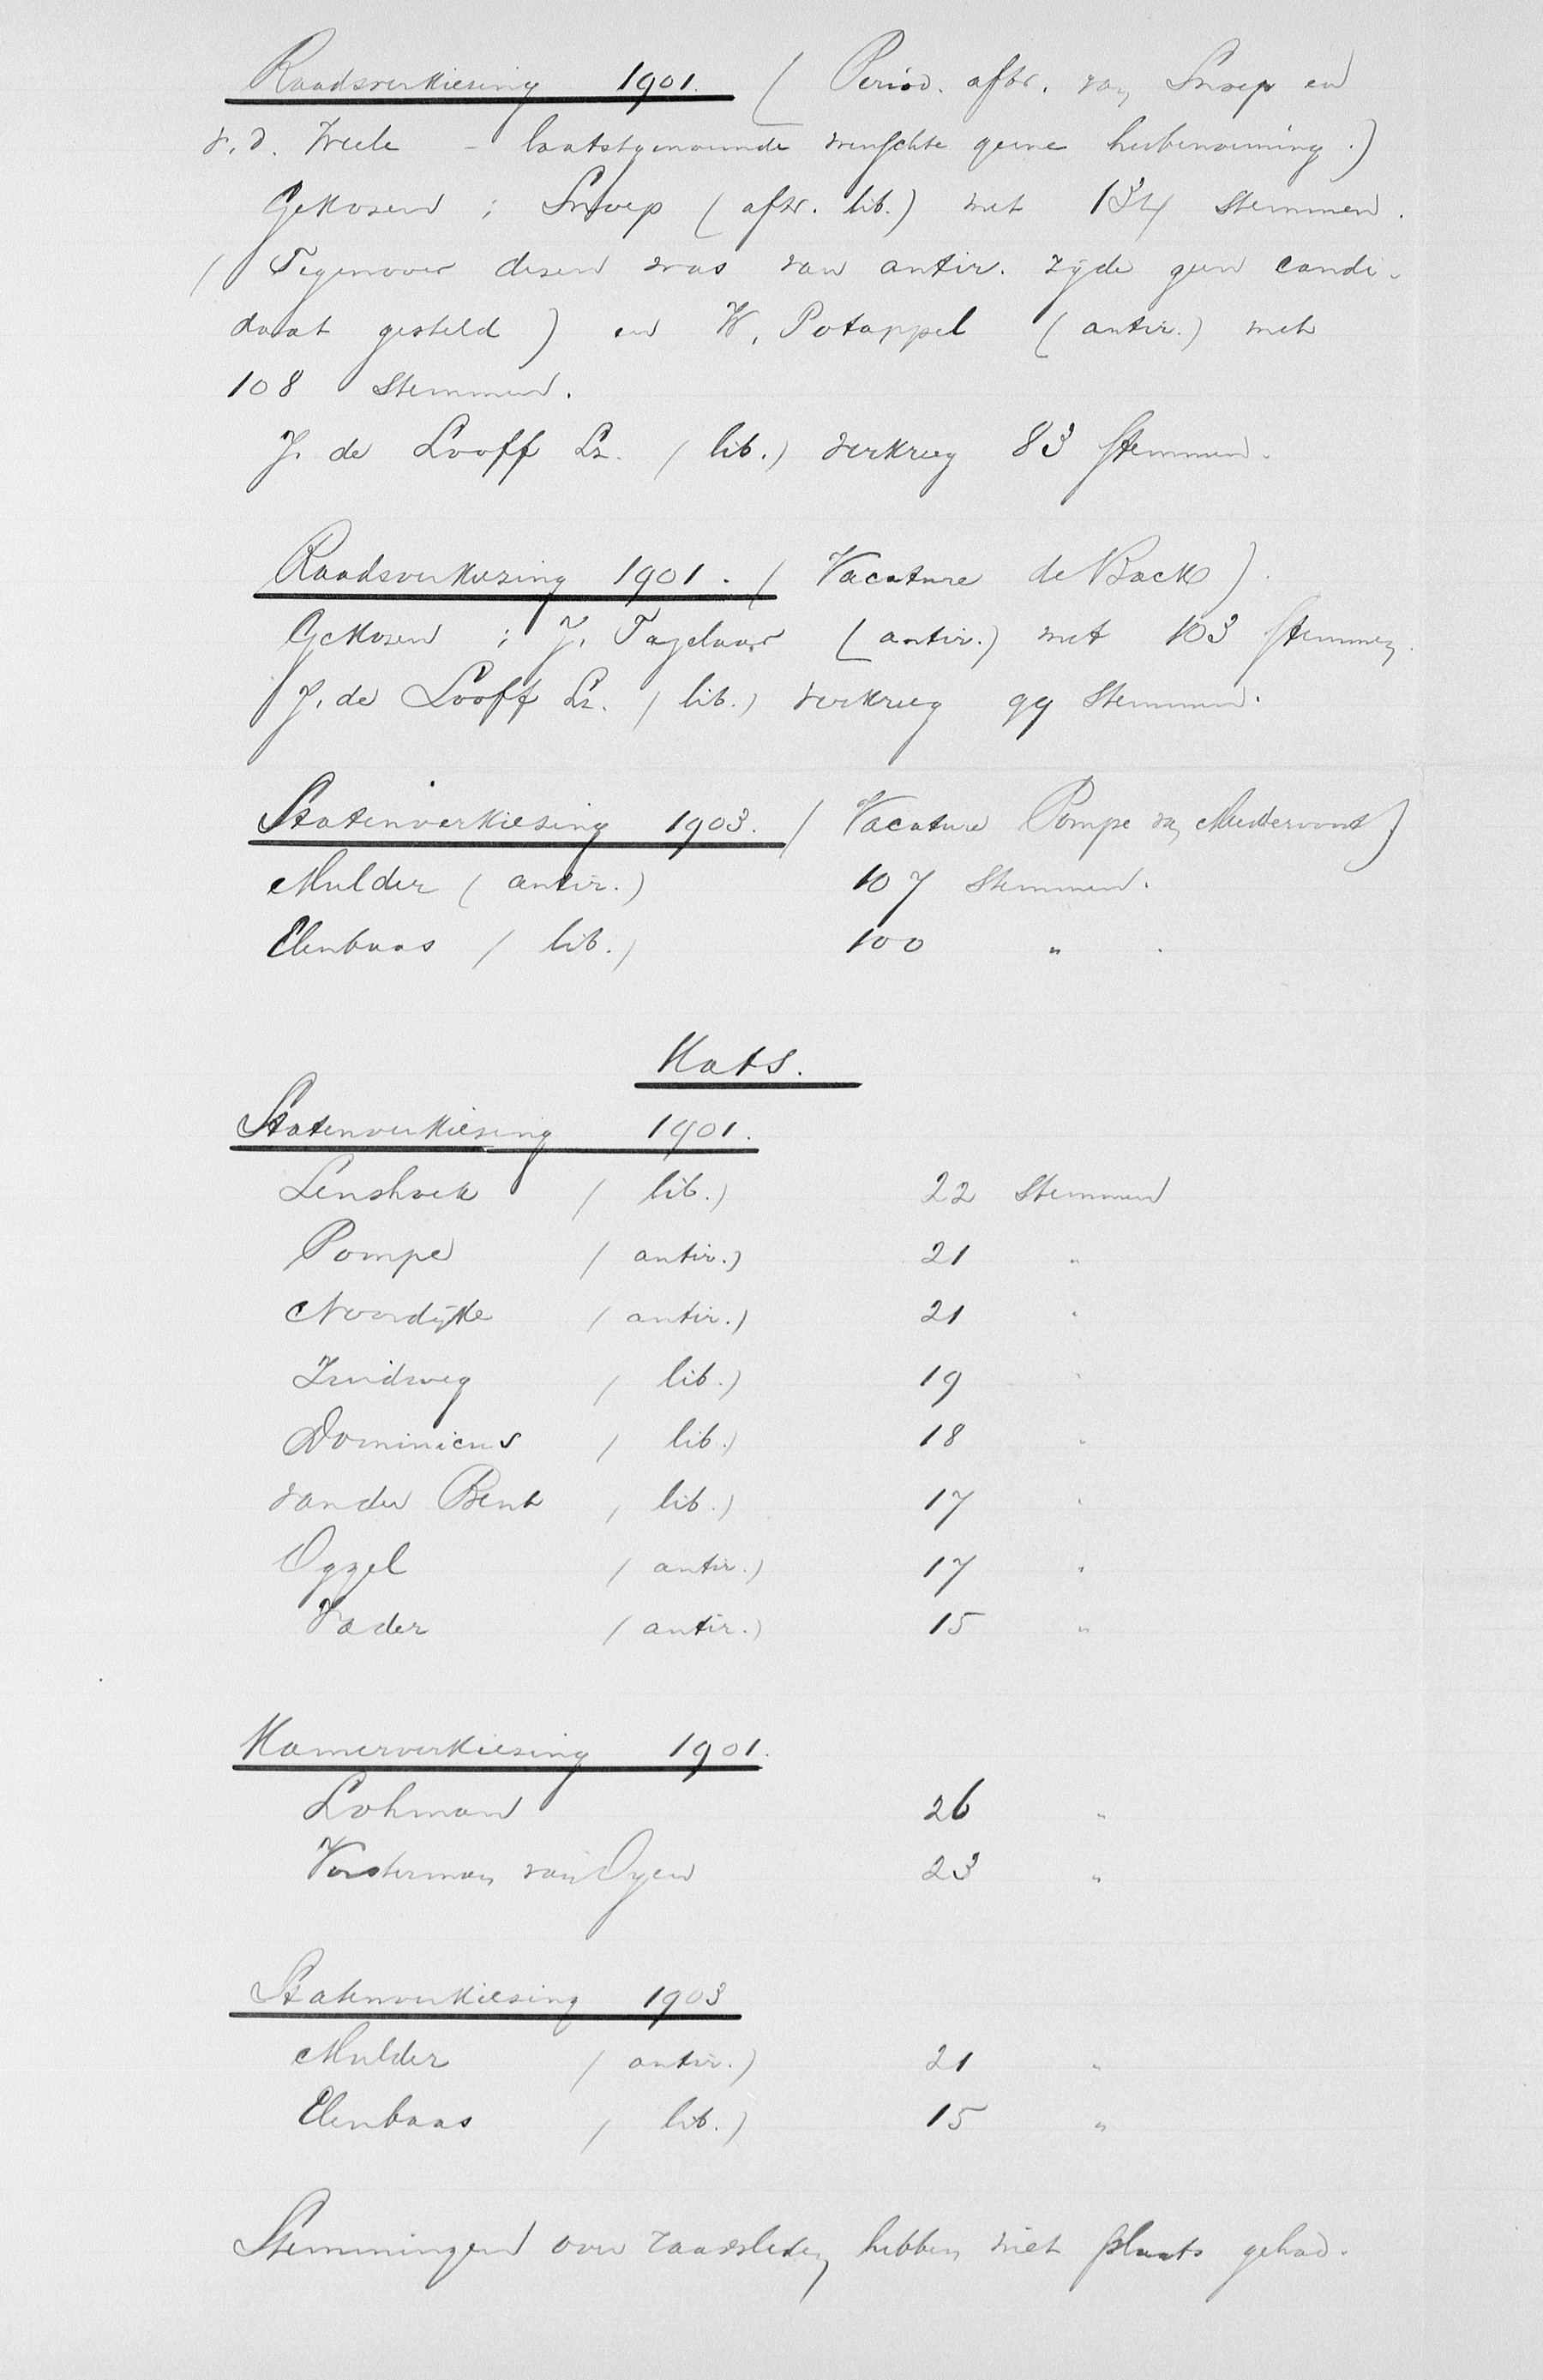 Raadsverkiezing 1901. (Period. aftr. van Snoep en
v. d. Weele - laatstgenoemde wenschte geene herbenoeming.)
Gekozen: Snoep (aftr. lib.) met 134 stemmen.
(Tegenover dezen was van antir. zijde geen candi-
daat gesteld) en W. Potappel (antir.) met
108 stemmen.
J. de Looff Lz. (lib.) verkreeg 83 stemmen.
Raadsverkiezing 1901. (Vacature de Back).
Gekozen: J. Tazelaar (antir.) met 103 stemmen.
J. de Looff Lz. (lib.) verkreeg 99 stemmen.
Statenverkiezing 1903. (Vacature Pompe van Meerdervoort)
Mulder (antir.) 107 stemmen.
Elenbaas (lib.) 100 " .
Kats.
Statenverkiezing 1901.
Lenshoek (lib.) 22 stemmen
Pompe (antir.) 21 "
Noordijke (antir.) 21 "
Zuidweg (lib.) 19 "
Dominicus (lib.) 18 "
van der Bent (lib.) 17 "
Oggel (antir.) 17 "
Vader (antir.) 15 "
Kamerverkiezing 1901.
Lohman 26 "
Vorsterman van Oyen 23 "
Statenverkiezing 1903
Mulder (antir.) 21 "
Elenbaas (lib.) 15 "
Stemmingen over raadsleden hebben niet plaats gehad.